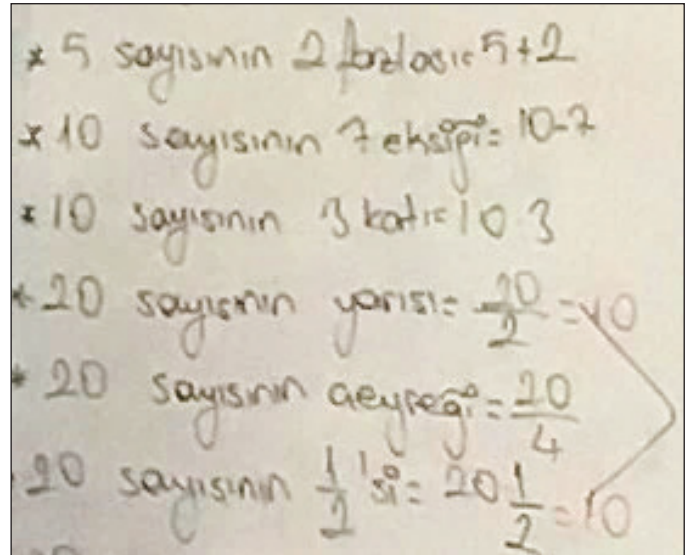 * 5 sayısının 2 fazlası= 5+2
* 10 sayısının 7 eksiği= 10-7
* 10 sayısının 3 katı= 10 3
* 20 sayısının yarısı= 20/2 = 10
* 20 sayısının çeyreği= 20/4
20 sayısının 1/2 'si= 20 1/2 = 10